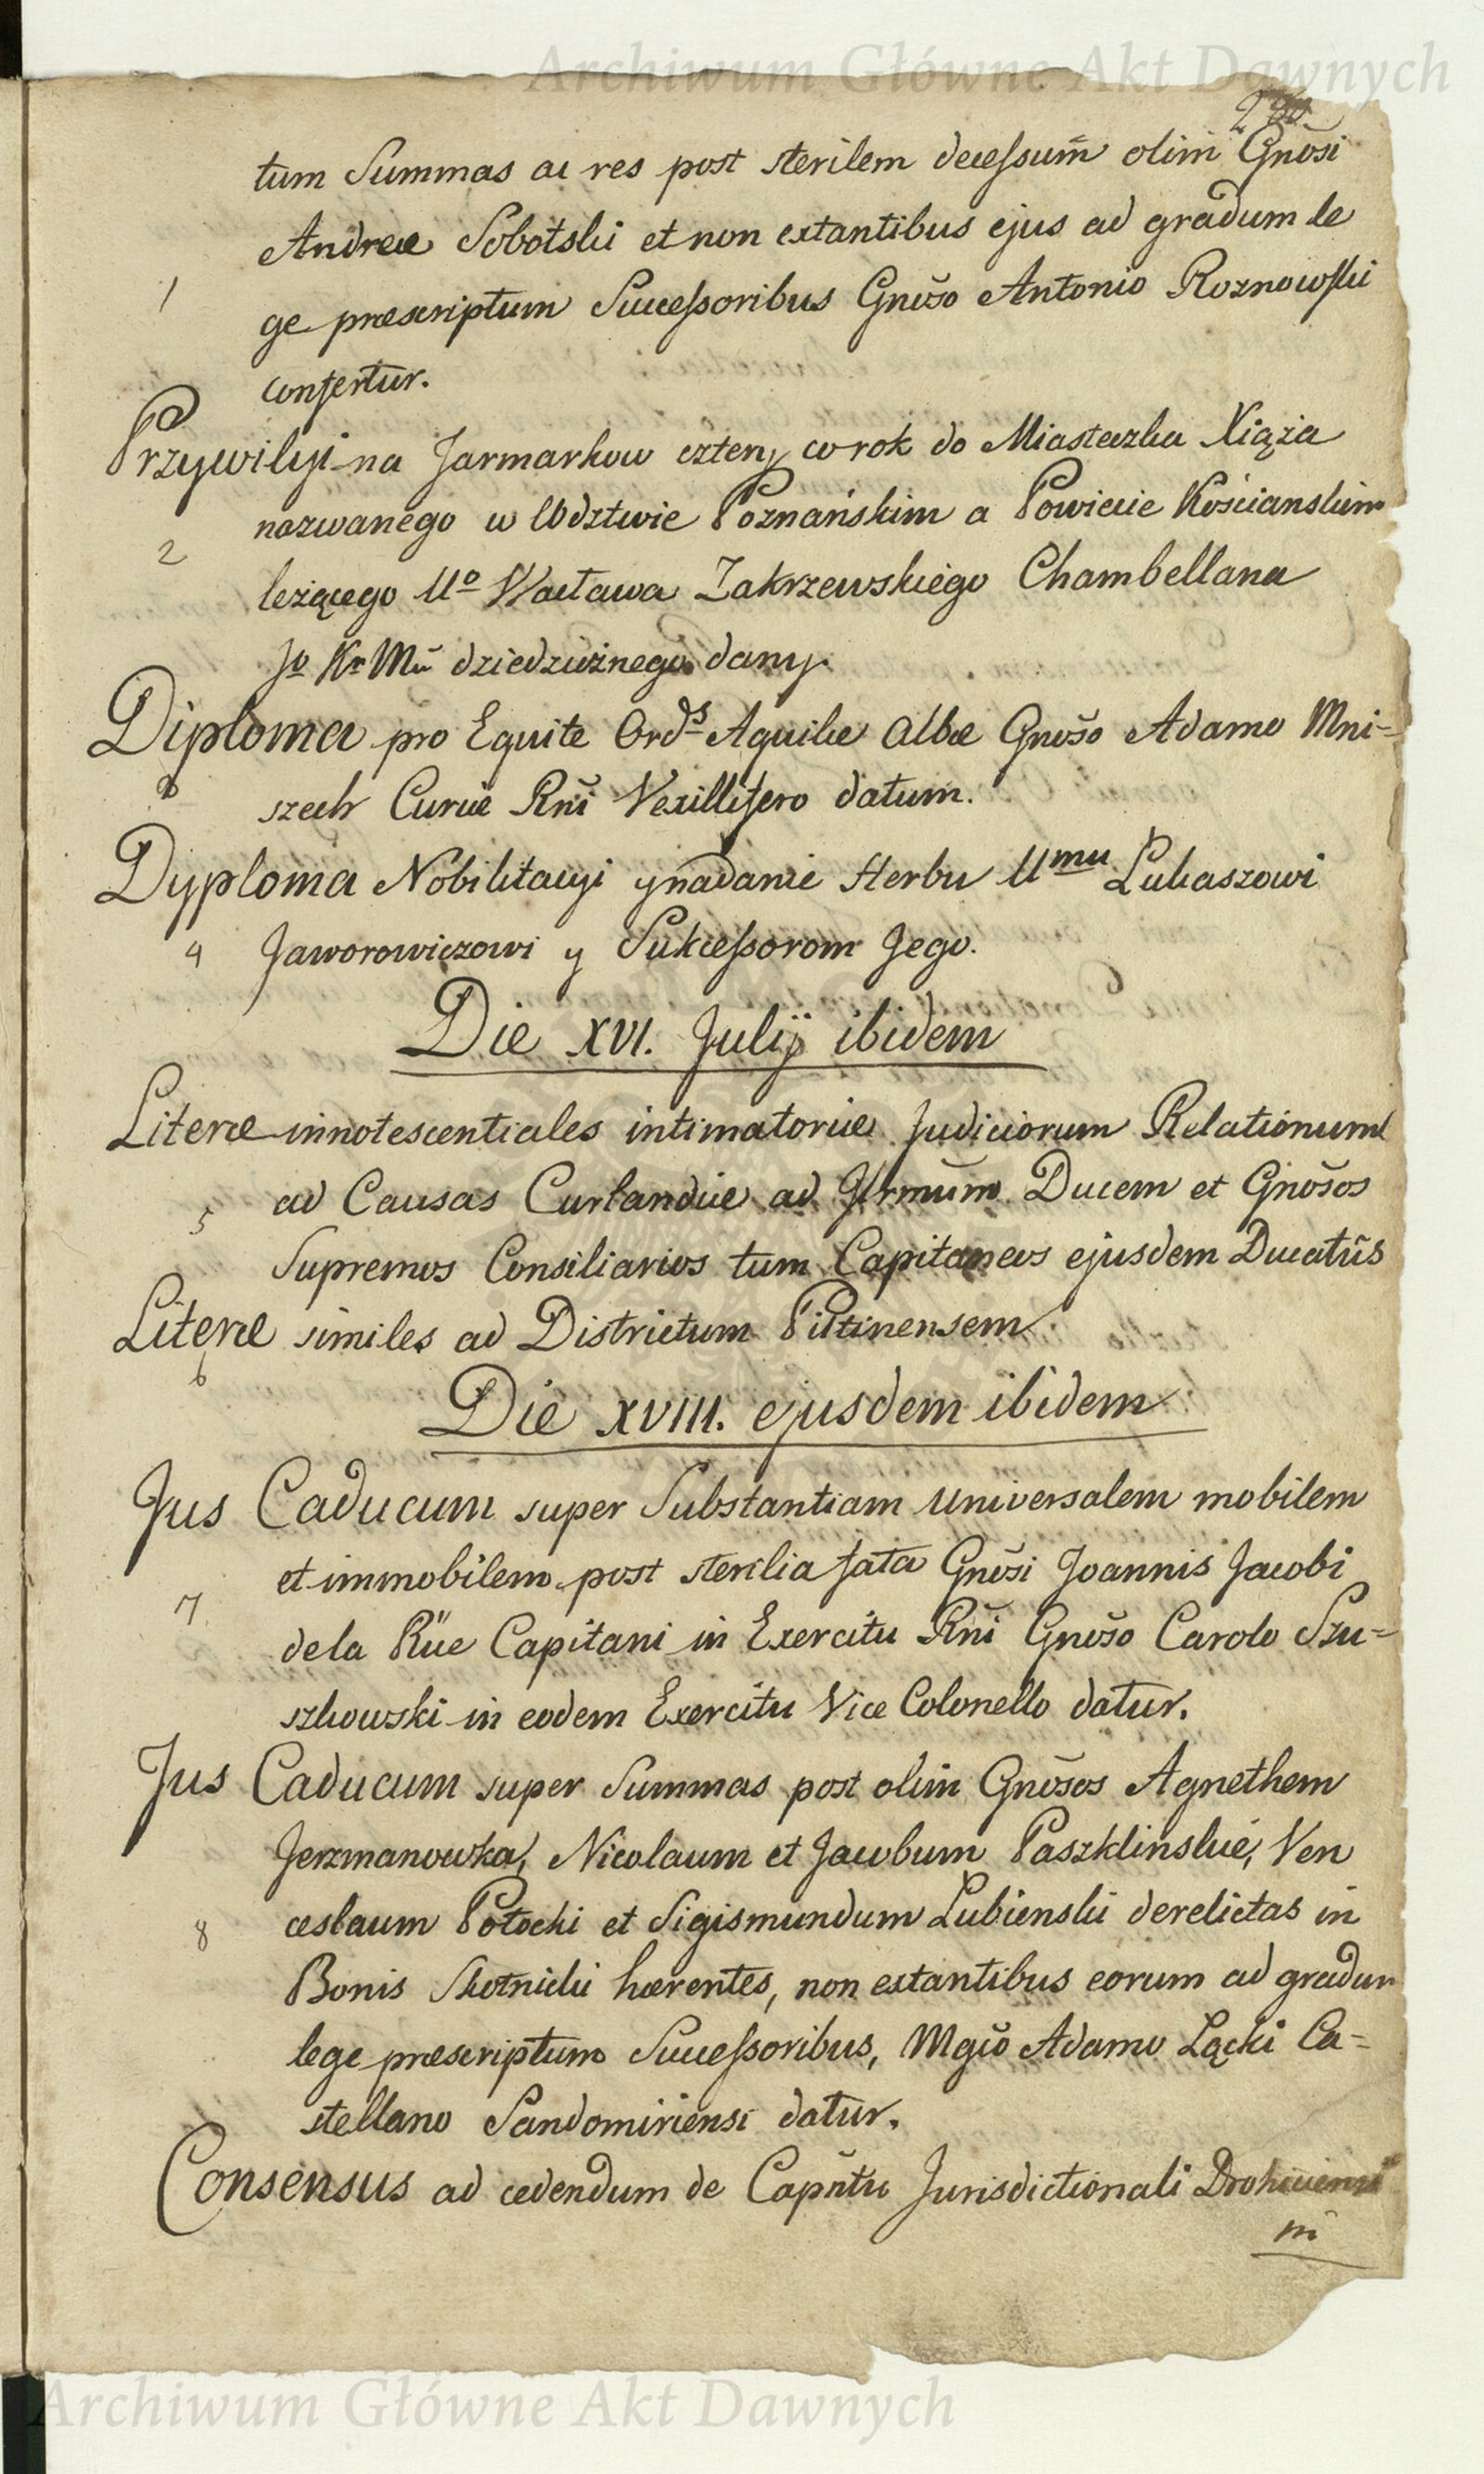 Archiwum Główne Akt Dawnych
tum Summas ac res post sterilem decessum̃ olim Gnõsi
Andreæ Sobotski et non extantibus ejus ad gradum le
1
ge præscriptum Successoribus Gnõso Antonio Roznowski
confertur.
Przywiley na Jarmarkow cztery co rok do Miasteczka Xiąża
nazwanego w Wdztwie Poznańskim a Powiecie Kościanskim
2
leżącego Uo Wacława Zakrzewskiego Chambellana
Jo Kr Mci dziedzicznego dany.
Diploma pro Equite Ords Aquilæ Albæ Gnõso Adamo Mni=
3
szech Curiæ Rñi Vexillifero datum.
Dyploma Nobilitacyi y nadanie Herbu Umu Lukaszowi
4 Jaworowiczowi y Sukcessorom Jego.
Die XVI. Julij ibidem
Literæ innotescentiales intimatoriæ Judiciorum Relationum
ad Causas Curlandiæ ad Illrmũm Ducem et Gnõsos
5
Supremos Consiliarios tum Capitaneos ejusdem Ducatûs
Literæ similes ad Districtum Piltinensem
6
Die XVIII. ejusdem ibidem
Jus Caducum super Substantiam universalem mobilem
et immobilem post sterilia fata Gnõsi Joannis Jacobi
7
dela Rüe Capitani in Exercitu Rñi Gnõso Carolo Szu=
szkowski in eodem Exercitu Vice Colonello datur.
Jus Caducum super Summas post olim Gnõsos Agnethem
Jerzmanowka, Nicolaum et Jacobum Paszklinskie, Ven
8 ceslaum Potocki et Sigismundum Lubienski derelictas in
Bonis Skotniki hærentes, non extantibus eorum ad gradum
lege præscriptum Successoribus, Mgco Adamo Lącki Ca=
stellano Sandomiriensi datur.
Consensus ad cedendum de Capñtu Jurisdictionali Drohiciensi
in
Archiwum Główne Akt Dawnych